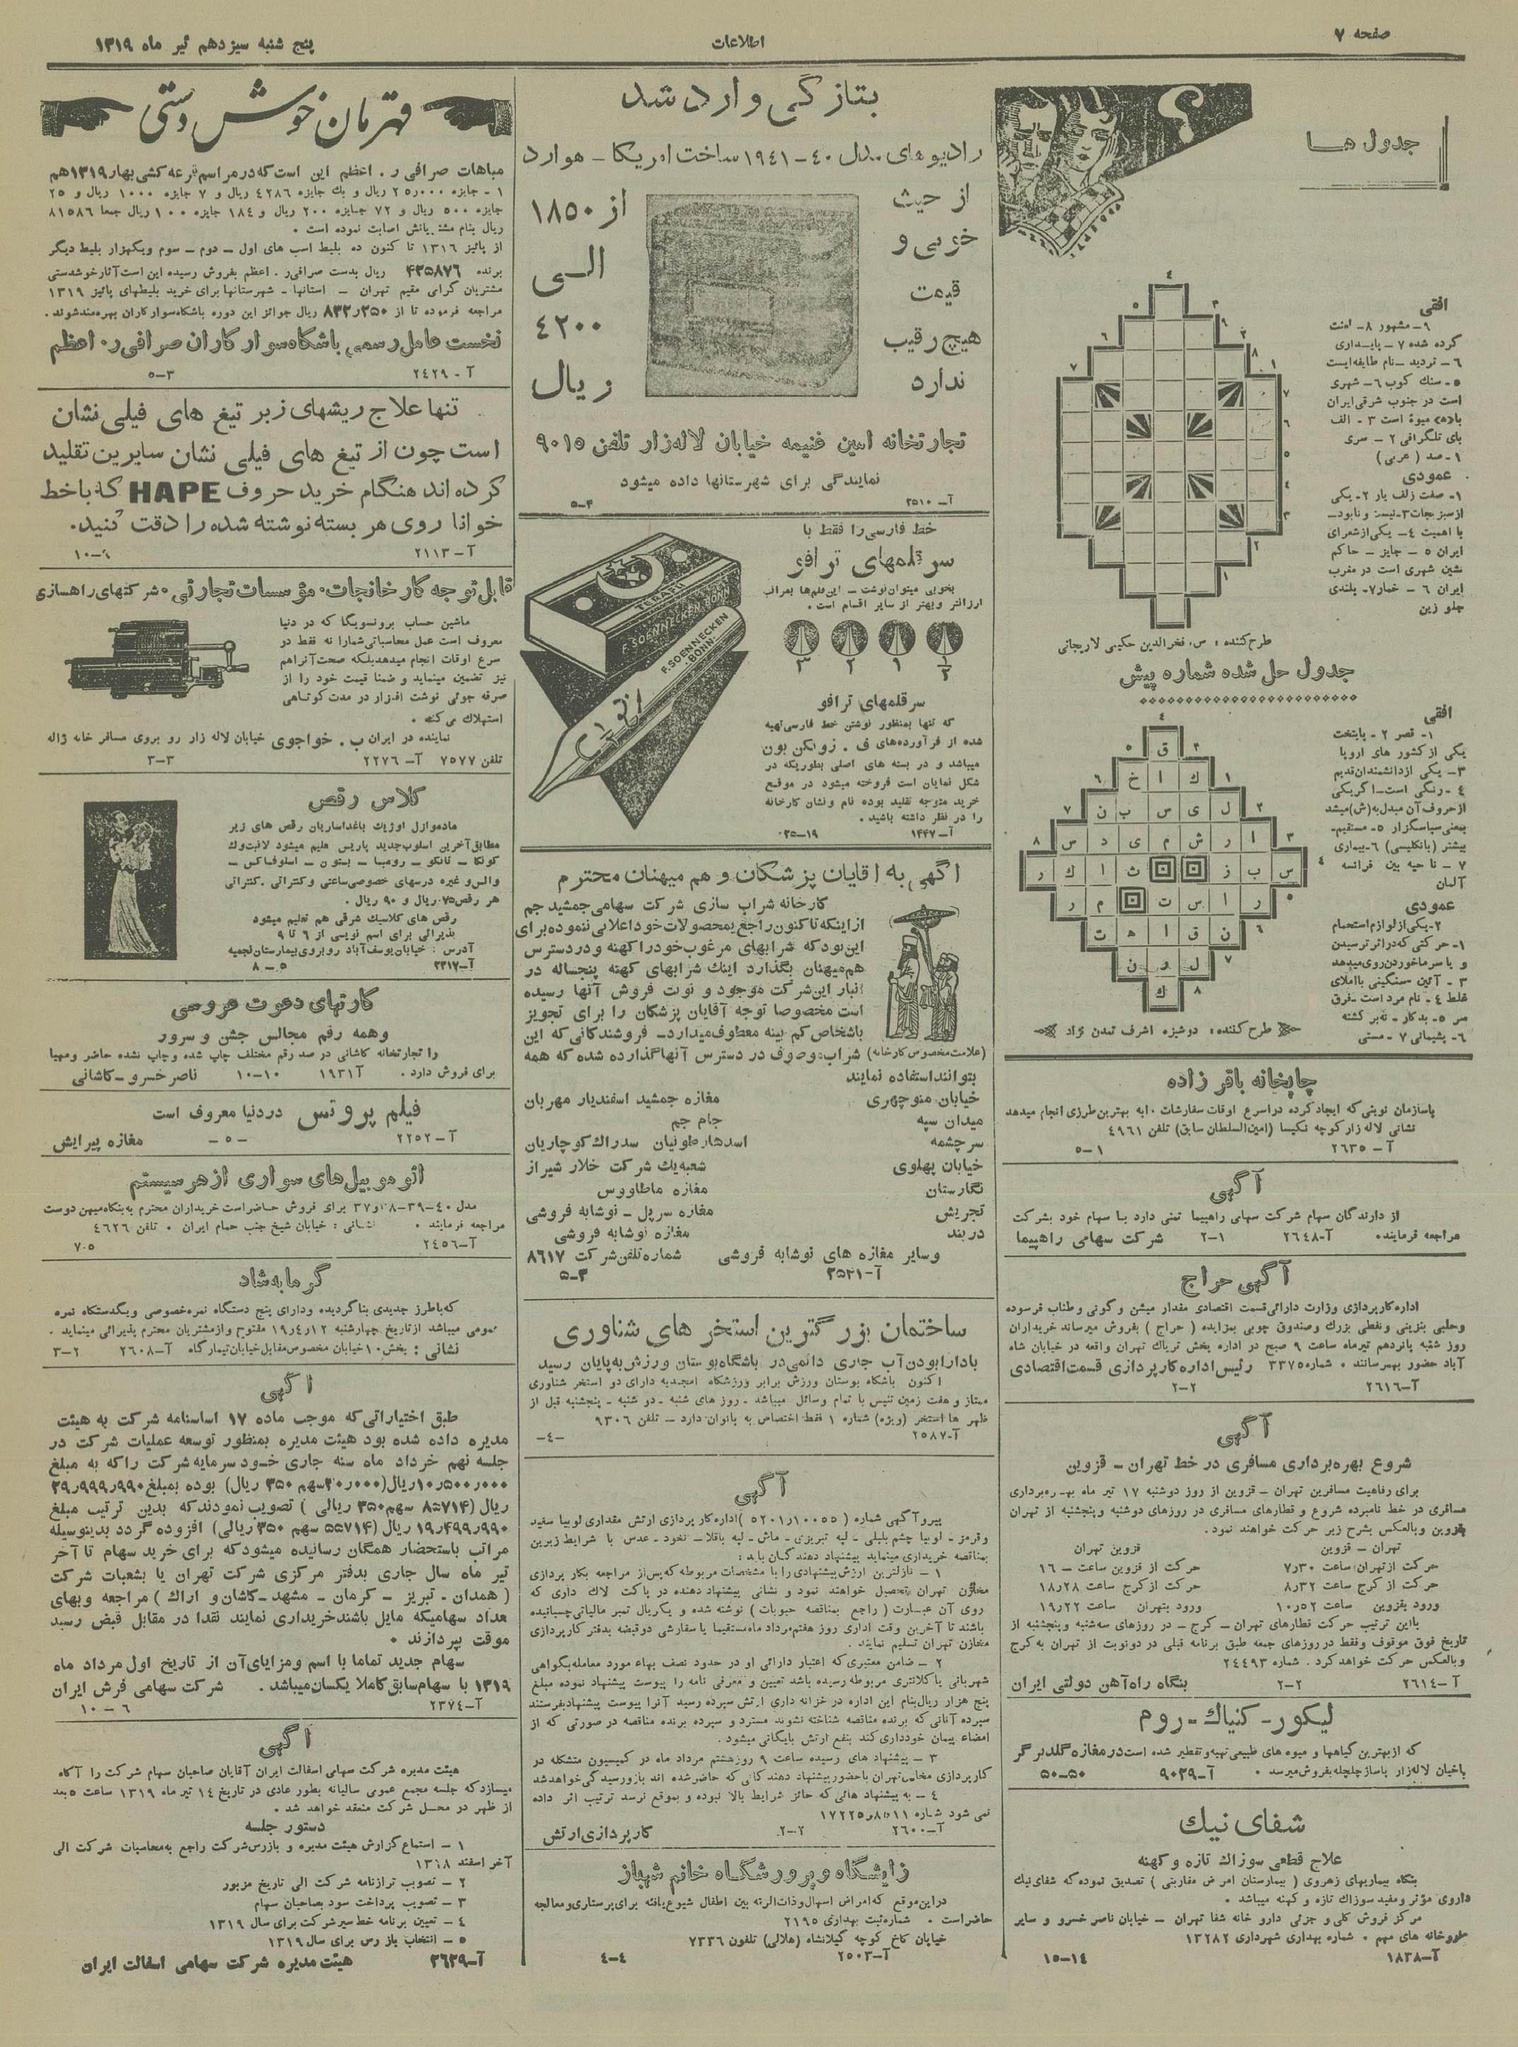 صفحه ۷
اطلاعات
پنج شنبه سیزدهم تیر ماه ۱۳۱۹
جدول ها
افقی
۹- مشهور ۸- لعنت
کرده شده ۷ - پایداری
۶- تردید - نام طایفه‌ایست
۵- سنك كوب ۶- شهری
است در جنوب شرقی ایران
میوهٔ است ۳- الف
بای تلگرافی ۲- سری
۱- صد (عربی)
عمودی
۱- صفت زلف یار ۲- یکی
از سبزیجات ۳- نیست و نابود -
با اهمیت ٤- یکی از شعرای
ایران ۵- جایز - حاکم
نشین شهری است در مغرب
ایران ۶- خمار ۷- بلندی
جلو زین
طرح‌کننده : س. فخرالدین حکیمی لاریجانی
جدول حل شده شماره پیش
افقی
۱- قصر ۲- پایتخت
یکی از کشور های اروپا
۳- یکی از دانشمندان قدیم
٤- رنگی است - اگر یکی
از حروف آن مبدل به (ش) میشد
بمعنی سپاسگزار ۵- مستقیم -
بیشتر (بانگلیسی) ۶- بیماری
۷- ناحیه بین فرانسه
آلمان
عمودی
۲- یکی از لوازم استحمام
۱- حرکتی که در اثر ترسیدن
و یا سرما خوردن روی میدهد
۳- آئین سنگینی باملای
غلط ٤- نام مرد است - فرق
سر ۵- بدکار - تبر کشته
۶- پشیمانی ۷- مستی
طرح‌کننده : دوشیزه اشرف تمدن نژاد
چاپخانه باقر زاده
باسازمان نوینی که ایجاد کرده در اسرع اوقات سفارشات را به بهترین طرزی انجام میدهد
نشانی لاله زار کوچه نکیسا (امین‌السلطان سابق) تلفن ٤۹۶۱
آ- ۲۶۳۵ ۵-۱
آگهی
از دارندگان سهام شرکت سهامی راهپیما تمنی دارد با سهام خود بشرکت
مراجعه فرمایند. آ- ۲۶٤۸ ۲-۱ شرکت سهامی راهپیما
آگهی حراج
اداره کارپردازی وزارت دارائی قسمت اقتصادی مقدار میشن و گونی و طناب فرسوده
و حلبی بنزینی و نفطی بزرك و صندوق چوبی بمزایده (حراج) بفروش میرساند خریداران
روز شنبه پانزدهم تیرماه ساعت ۹ صبح در اداره پخش تریاك تهران واقعه در خیابان شاه
آباد حضور بهمرسانند . شماره ۳۳۷۵ رئیس اداره کارپردازی قسمت اقتصادی
آ- ۲۶۱۶ ۲-۲
آگهی
شروع بهره‌برداری مسافری در خط تهران - قزوین
برای رفاهیت مسافرین تهران - قزوین از روز دوشنبه ۱۷ تیر ماه بهره‌برداری
مسافری در خط نامبرده شروع و قطارهای مسافری در روزهای دوشنبه و پنجشنبه از تهران
قزوین و بالعکس بشرح زیر حرکت خواهند نمود.
تهران - قزوین قزوین تهران
حرکت از تهران ساعت ۷ر۳۰ حرکت از قزوین ساعت - ۱۶
حرکت از کرج ساعت ۸ر۳۲ حرکت از کرج ساعت ۱۸ر۲۸
ورود بقزوین ساعت ۱۰ر۵۲ ورود بتهران ۱۹ر۲۲
با این ترتیب حرکت قطارهای تهران - کرج - در روزهای سه‌شنبه و پنجشنبه از
تاریخ فوق موقوف و فقط در روزهای جمعه طبق برنامه قبلی در دو نوبت از تهران به کرج
و بالعکس حرکت خواهد کرد. شماره ۲٤٤۹۳
آ- ۲۶۱٤ ۲-۲ بنگاه راه‌آهن دولتی ایران
لیکور - کنیاك - روم
که از بهترین گیاهها و میوه های طبیعی تهیه و تقطیر شده است در مغازه گلدبرگر
خیابان لاله‌زار پاساژ چلچله بفروش میرسد . آ- ۹۰۲۹ ۵۰-۵۰
شفای نیك
علاج قطعی سوزاك تازه و کهنه
بنگاه بیماریهای زهروی (بیمارستان امراض مقاربتی) تصدیق نموده که شفای نیك
داروی مؤثر و مفید سوزاك تازه و کهنه میباشد .
مرکز فروش کلی و جزئی دارو خانه شفا تهران - خیابان ناصر خسرو و سایر
داروخانه های مهم . شماره بهداری شهرداری ۱۳۲۸۲
آ- ۱۸۳۸ ۱۵-۱٤
بتازگی وارد شد
رادیوهای مدل ٤۰ - ۱۹٤۱ ساخت امریکا - هوارد
از حیث
خوبی و
قیمت
هیچ رقیب
ندارد
از ۱۸۵۰
الی
٤۲۰۰
ریال
تجارتخانه امین غنیمه خیابان لاله‌زار تلفن ۹۰۱۵
نمایندگی برای شهرستانها داده میشود
آ- ۲۵۱۰ ۵-۴
خط فارسی را فقط با
سرقلمهای ترافو
بخوبی میتوان نوشت - این قلمها بمراتب
ارزانتر و بهتر از سایر اقسام است .
۱/۲ ۱ ۲ ۳
TERAFU
F. SOENNECKEN BONN
F. SOENNECKEN
BONN
سرقلمهای ترافو
که تنها بمنظور نوشتن خط فارسی تهیه
شده از فرآورده‌های ف . زونکن بون
میباشد و در بسته های اصلی بطوریکه در
شکل نمایان است فروخته میشود در موقع
خرید متوجه تقلید بوده نام و نشان کارخانه
را در نظر داشته باشید .
آ- ۱٤٤۷ ۲۵-۱۹
آگهی به آقایان پزشکان و هم میهنان محترم
کارخانه شراب سازی شرکت سهامی جمشید جم
از اینکه تا کنون راجع بمحصولات خود اعلانی ننموده برای
این بود که شرابهای مرغوب خود را کهنه و در دسترس
هم‌میهنان بگذارد اینك شرابهای کهنه پنجساله در
انبار این شرکت موجود و نوبت فروش آنها رسیده
است مخصوصا توجه آقایان پزشکان را برای تجویز
باشخاص کم بینه معطوف میدارد - فروشندگانی که این
(علامت مخصوص کارخانه) شراب موصوف در دسترس آنها گذارده شده که همه
بتوانند استفاده نمایند
خیابان منوچهری مغازه جمشید اسفندیار مهربان
میدان سپه جام جم
سرچشمه سدراك کوچاریان
خیابان پهلوی شعبه یك شرکت خلار شیراز
نگارستان مغازه ماطاووس
تجریش مغازه سرپل - نوشابه فروشی
دربند مغازه نوشابه فروشی
و سایر مغازه های نوشابه فروشی شماره تلفن شرکت ۸۶۱۷
آ- ۲۵۲۱ ۵-۳
ساختمان بزرگترین استخر های شناوری
با دارا بودن آب جاری دائمی در باشگاه بوستان ورزش به پایان رسید
اکنون باشگاه بوستان ورزش برابر ورزشگاه امجدیه دارای دو استخر شناوری
ممتاز و هفت زمین تنیس با تمام وسائل میباشد - روز های شنبه - دو شنبه - پنجشنبه قبل از
ظهر ها استخر (ویژه) شماره ۱ فقط اختصاص به بانوان دارد - تلفن ۹۳۰۶
آ- ۲۵۸۷ -٤-
آگهی
پیرو آگهی شماره (۵۲۰۱ر۱۰۰۵۵) اداره کار پردازی ارتش مقداری لوبیا سفید
و قرمز - لوبیا چشم بلبلی - لپه تبریزی - ماش - لپه باقلا - نخود - عدس با شرایط زیرین
بمناقصه خریداری مینماید پیشنهاد دهندگان باید :
۱ - نازلترین ارزش پیشنهادی را با مشخصات مربوطه که پس از مراجعه بکار پردازی
مخازن تهران تحصیل خواهند نمود و نشانی پیشنهاد دهنده در پاکت لاك داری که
روی آن عبارت (راجع بمناقصه حبوبات) نوشته شده و یکریال تمبر مالیاتی چسبانیده
باشند تا آخرین وقت اداری روز هفتم مرداد ماه مستقیما یا سفارشی دو قبضه بدفتر کارپردازی
مخازن تهران تسلیم نمایند.
۲ - ضامن معتبری که اعتبار دارائی او در حدود نصف بهاء مورد معامله بگواهی
شهربانی یا کلانتری مربوطه رسیده باشد تعیین و معرفی نامه را پیوست پیشنهاد نموده مبلغ
پنج هزار ریال بنام این اداره در خزانه داری ارتش سپرده رسید آنرا پیوست پیشنهاد بفرستند
سپرده آنانی که برنده مناقصه شناخته نشوند مسترد و سپرده برنده مناقصه در صورتی که از
امضاء پیمان خودداری کند بنفع ارتش بایگانی میشود.
۳ - پیشنهاد های رسیده ساعت ۹ روز هشتم مرداد ماه در کمیسیون متشکله در
کارپردازی مخازن تهران با حضور پیشنهاد دهندگانی که حاضر شده اند باز و رسیدگی خواهد شد
٤ - به پیشنهاد هائی که حائز شرایط بالا نبوده و بموقع نرسد ترتیب اثر داده
نمی شود
آ- ۲۶۰۰ ۲-۲ کارپردازی ارتش
زایشگاه و پرورشگاه خانم شهناز
در این موقع که امراض اسهال و ذات‌الریه بین اطفال شیوع یافته برای پرستاری و معالجه
حاضر است . شماره ثبت بهداری ۲۱۹۵
خیابان کاخ کوچه گیلانشاه (هلالی) تلفون ۷۳۳۶
آ- ۲۵۰۳ ٤-٤
قهرمان خوش دستی
مباهات صرافی ر. اعظم این است که در مراسم قرعه کشی بهار ۱۳۱۹ هم
۱- جایزه ۲۵ر۰۰۰ ریال و یك جایزه ٤۲۸۶ ریال و ۷ جایزه ۱۰۰۰ ریال و ۲۵
جایزه ۵۰۰ ریال و ۷۲ جایزه ۲۰۰ ریال و ۱۸٤ جایزه ۱۰۰ ریال جمعا ۸۱۵۸۶
ریال بنام مشتریانش اصابت نموده است .
از پائیز ۱۳۱۶ تا کنون ده بلیط اسب های اول - دوم - سوم و یکهزار بلیط دیگر
برنده ۴۳۵۸۷۶ ریال بدست صرافی ر. اعظم بفروش رسیده این است آثار خوشدستی
مشتریان گرامی مقیم تهران - استانها - شهرستانها برای خرید بلیطهای پائیز ۱۳۱۹
مراجعه فرموده تا از ۸۳۲ر۲۵۰ ریال جوائز این دوره باشگاه سوارکاران بهره‌مند شوند.
نخست عامل رسمی باشگاه سوارکاران صرافی ر. اعظم
آ- ۲٤۲۹ ۵-۳
تنها علاج ریشهای زبر تیغ های فیلی نشان
است چون از تیغ های فیلی نشان سایرین تقلید
کرده اند هنگام خرید حروف HAPE که با خط
خوانا روی هر بسته نوشته شده را دقت کنید.
آ- ۲۱۱۳ ۱۰-۹
قابل توجه کارخانجات . مؤسسات تجارتی . شرکتهای راهسازی
ماشین حساب برونسویگا که در دنیا
معروف است عمل محاسباتی شما را نه فقط در
سرع اوقات انجام میدهد بلکه صحت آنرا هم
نیز تضمین مینماید و ضمنا قیمت خود را از
صرفه جوئی نوشت افزار در مدت کوتاهی
استهلاك می‌کند .
نماینده در ایران ب. خواجوی خیابان لاله زار رو بروی مسافر خانه ژاله
تلفن ۷۵۷۷ آ- ۲۲۷۶ ۳-۳
کلاس رقص
مادموازل اوژنیك باغداساریان رقص های زیر
مطابق آخرین اسلوب جدید پاریس تعلیم میشود لامبت‌وك
کونگا - تانگو - رومبا - بستون - اسلوفاکس -
والس و غیره درسهای خصوصی ساعتی و کنتراتی. کنتراتی
هر رقص ۷۵ ریال و ۹۰ ریال .
رقص های کلاسیك شرقی هم تعلیم میشود
پذیرائی برای اسم نویسی از ۶ تا ۹
آدرس : خیابان یوسف‌آباد روبروی بیمارستان نجمیه
آ- ۲۳۱۷ ۸-۵
کارتهای دعوت عروسی
و همه رقم مجالس جشن و سرور
را تجارتخانه کاشانی در صد رقم مختلف چاپ شده و چاپ نشده حاضر و مهیا
برای فروش دارد . آ- ۱۹۳۱ ۱۰-۱۰ ناصر خسرو - کاشانی
فیلم پروتس در دنیا معروف است
آ- ۲۲۵۲ -۵- مغازه پیرایش
اتومبیل‌های سواری از هر سیستم
مدل ٤۰-۳۹-۳۸و۳۷ برای فروش حاضر است خریداران محترم به بنگاه میهن دوست
مراجعه فرمایند . نشانی : خیابان شیخ جنب حمام ایران . تلفن ٤۶۲۶
آ- ۲٤۵۶ ۷-۵
گرمابه شاد
که با طرز جدیدی بنا گردیده و دارای پنج دستگاه نمره خصوصی و یکدستگاه نمره
عمومی میباشد از تاریخ چهارشنبه ۱۲ر٤ر۱۹ مفتوح و از مشتریان محترم پذیرائی مینماید .
نشانی : بخش ۱۰ خیابان مخصوص مقابل خیابان تیمارگاه آ- ۲۶۰۸ ۳-۲
آگهی
طبق اختیاراتی که موجب ماده ۱۷ اساسنامه شرکت به هیئت
مدیره داده شده بود هیئت مدیره بمنظور توسعه عملیات شرکت در
جلسه نهم خرداد ماه سنه جاری خود سرمایه شرکت را که به مبلغ
۱۰ر۵۰۰ر۰۰۰ ریال (۳۰ر۰۰۰ سهم ۳۵۰ ریال) بوده بمبلغ ۲۹ر۹۹۹ر۹۹۰
ریال (۸۵۷۱٤ سهم ۳۵۰ ریالی) تصویب نمودند که بدین ترتیب مبلغ
۱۹ر۴۹۹ر۹۹۰ ریال (۵۵۷۱٤ سهم ۳۵۰ ریالی) افزوده گردد بدینوسیله
مراتب باستحضار همگان رسانیده میشود که برای خرید سهام تا آخر
تیر ماه سال جاری بدفتر مرکزی شرکت تهران یا بشعبات شرکت
(همدان - تبریز - کرمان - مشهد - کاشان و اراك) مراجعه و بهای
تعداد سهامیکه مایل باشند خریداری نمایند نقدا در مقابل قبض رسید
موقت بپردازند .
سهام جدید تماما با اسم و مزایای آن از تاریخ اول مرداد ماه
۱۳۱۹ با سهام سابق کاملا یکسان میباشد . شرکت سهامی فرش ایران
آ- ۲۳۷٤ ۱۰-۶
آگهی
هیئت مدیره شرکت سهامی اسفالت ایران آقایان صاحبان سهام شرکت را آگاه
میسازد که جلسه مجمع عمومی سالیانه بطور عادی در تاریخ ۱٤ تیر ماه ۱۳۱۹ ساعت ۵ بعد
از ظهر در محل شرکت منعقد خواهد شد .
دستور جلسه
۱ - استماع گزارش هیئت مدیره و بازرس شرکت راجع به محاسبات شرکت الی
آخر اسفند ۱۳۱۸
۲ - تصویب ترازنامه شرکت الی تاریخ مزبور
۳ - تصویب پرداخت سود بصاحبان سهام
٤ - تعیین برنامه خط سیر شرکت برای سال ۱۳۱۹
۵ - انتخاب باز رس برای سال ۱۳۱۹
آ- ۲۶۲۹ هیئت مدیره شرکت سهامی اسفالت ایران